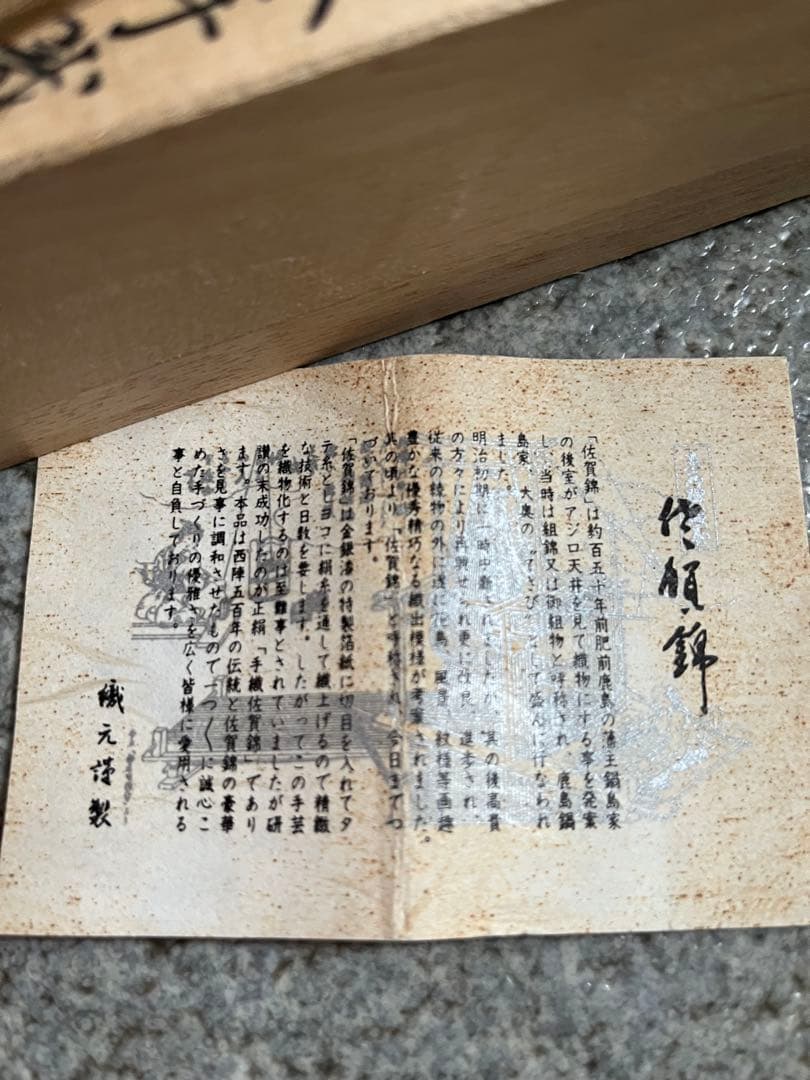 佐賀錦
「佐賀錦」は約百五十年前肥前鹿島の藩主鍋島家
の後室がアジロ天井を見て織物にする事を発案
し、当時は組錦又は御組物と呼称され、鹿島鍋
島家、大奥の〝てさび〟として盛んに行なわれ
ました。
明治初期に一時中断されましたが、其の後高貴
の方々により再興せられ更に改良、進歩され、
従来の綾物の外に遂に花鳥、風景、紋様等画趣
豊かな優秀精巧なる織出模様が考案されました。
其の頃より「佐賀錦」と呼称され、今日までつ
づいております。
「佐賀錦」は金銀漆の特製箔紙に切目を入れてタ
テ糸としヨコに絹糸を通して織上げるので精緻
な技術と日数を要します。したがってこの手芸
を織物化するのは至難事とされていましたが研
讃の末成功したのが正絹「手織佐賀錦」であり
ます。本品は西陣五百年の伝統と佐賀錦の豪華
さを見事に調和させたもので一つ一つに誠心こ
めた手づくりの優雅さを広く皆様に愛用される
事と自負しております。
織元謹製